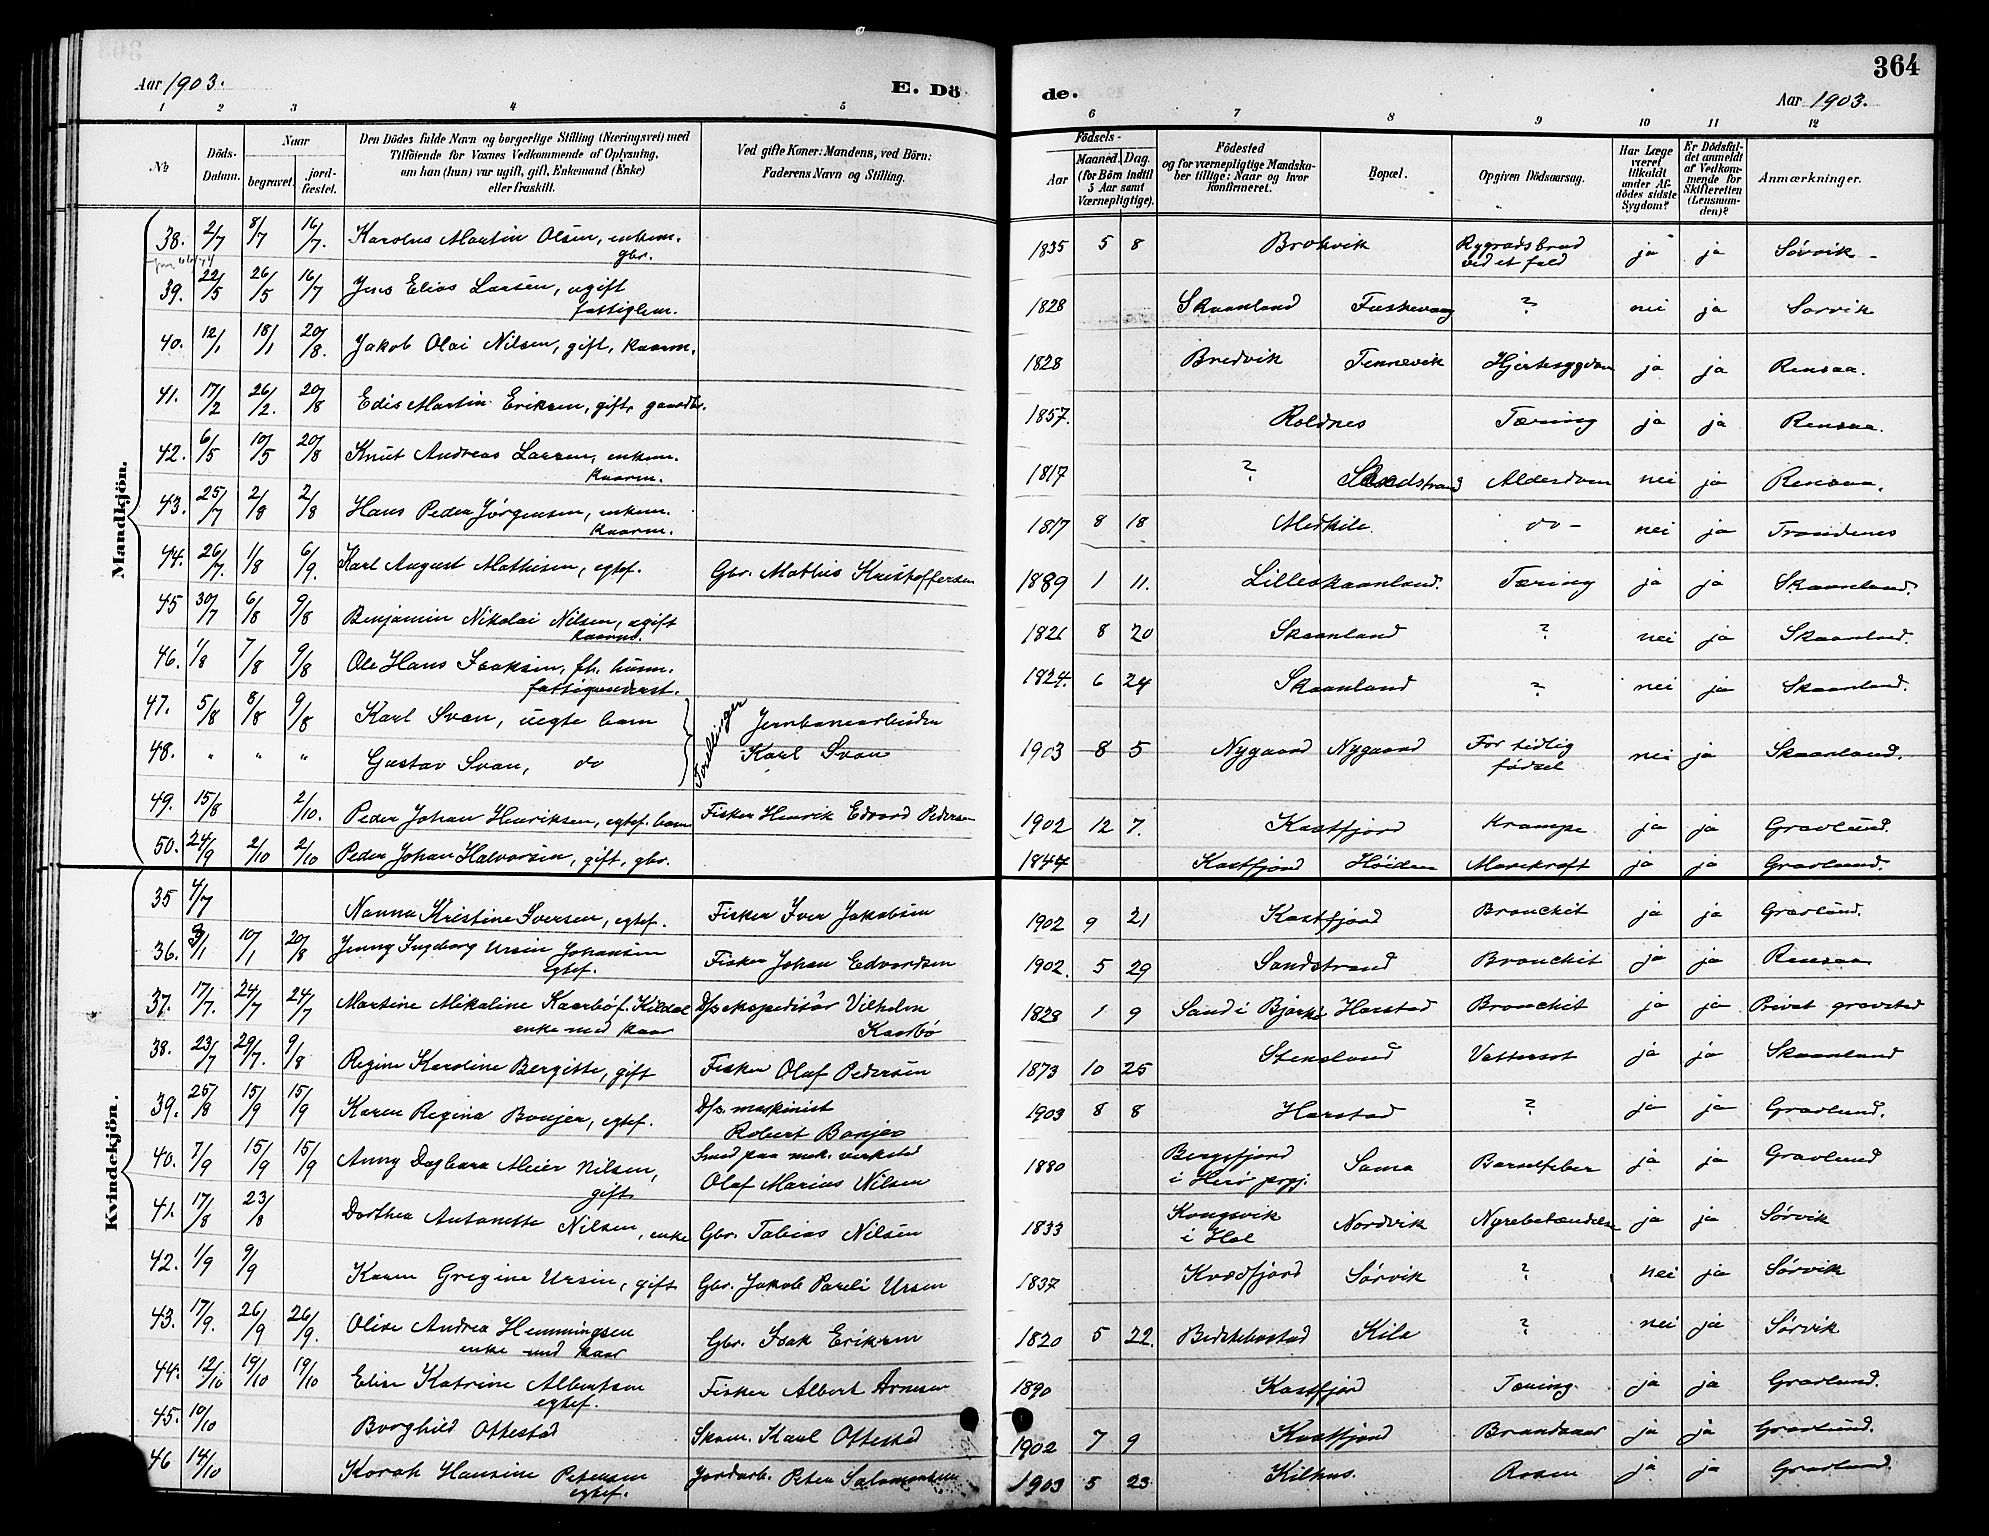 364
Aar 1903.
E. Dö
de.
Aar 1903.
1 2 3 4 5 6 7 8 9 10 11 12
No
Döds-Datum.
Naar
begravet.
jord-fæstet.
Den Dödes fulde Navn og borgerlige Stilling (Næringsvei) med
Tilföiende for Voxnes Vedkommende af Oplysning,
om han (hun) var ugift, gift, Enkemand (Enke)
eller fraskilt.
Ved gifte Koner: Mandens, ved Börn:
Faderens Navn og Stilling.
Födsels-
Aar
Maaned. Dag.
(for Börn indtil
5 Aar samt
Værnepligtige).
Födested
og for værnepligtige Mandska-
ber tillige: Naar og hvor
konfirmeret.
Bopæl.
Opgiven Dödsaarsag.
Har Læge
været
tilkaldt
under Af-
dödes sidste
Sygdom?
Er Dödsfal-
det anmeldt
af Vedkom-
mende for
Skifteretten
(Lensman-
den)?
Anmærkninger.
Mandkjön.
38. 2/7 8/7 16/7. Karolus Martin Olsen, enkem. gbr. 1835 5 8 Brokvik Rygradsbrud ved et fald ja ja Sørvik
39. 22/5 26/5 16/7 Jens Elias Larsen, ugift fattiglem. 1828 Skaanland Fuskevaag ? nei ja Sørvik
40. 12/1 18/1 20/8. Jakob Olai Nilsen, gift, kaarm. 1828 Bredvik Tennevik Hjertesygdom ja ja Rensaa.
41. 17/2 26/2. 20/8 Edis Martin Eriksen, gift, gaardbr. 1857. Roldnes Tæring ja ja Rensaa.
42. 6/5 10/5 20/8 Knut Andreas Larsen, enkem. kaarm. 1817 ? Sandstrand Alderdom nei ja Rensaa.
43. 25/7 2/8 2/8 Hans Peder Jørgensen, enkem. kaarm. 1817 8 18 Medkile do - nei ja Trondenes
44. 26/7. 1/8 6/9. Karl August Mathisen, egtef. Gbr. Mathis Kristoffersen 1889 1 11. Lilleskaanland. Tæring ja ja Skaanland.
45 30/7 6/8 9/8 Benjamin Nikolai Nilsen, ugift kaarm. 1826 8 20 Skaanland ? nei ja Skaanland.
46. 1/8 7/8 9/8 Ole Hans Isaksen, fh. husm. fattigunderst. 1824. 6 24 Skaanland ? nei ja Skaanland.
47. 5/8 8/8 9/8 Karl Svan, uegte barn Tvillinger Jernbanearbeider
48. " " " Gustav Svan, do Karl Svan 1903 8 5 Nygaard Nygaard For tidlig fødsel nei ja Skaanland.
49. 15/8 2/10. Peder Johan Henriksen, egtef. barn Fisker Henrik Edvard Pedersen 1902 12 7. Kastfjord Krampe ja ja Gravlund.
50. 24/9 2/10 2/10 Peder Johan Halvorsen, gift, gbr. 1844 Kastfjord Høiden Mavekræft ja ja Gravlund.
Kvindekjön.
35 4/7 Nanna Kristine Iversen, egtef. Fisker Iver Jakobsen 1902 9 21 Kastfjord Bronchit ja ja Gravlund.
36. 3/1 10/1 20/8 Jenny Ingeborg Ursin Johansen egtef. Fisker Johan Edvardsen 1902. 5 29 Sandstrand Bronchit ja ja Rensaa
37. 17/7. 24/7 24/7 Martine Mikaline Kaarbø f. Kildal enke med kaar D/s ekspeditør Vilhelm Kaarbø 1828 1 9 Sand i Bjarkø Harstad Bronchit ja ja Privat gravsted
38. 23/7 29/7. 9/8 Regine Karoline Bergitte, gift Fisker Olaf Pedersen 1873 10 25 Stensland Vattersot ja ja Skaanland
39. 25/8 15/9 15/9 Karen Regina Bonjer, egtef. D/s. maskinist Robert Bonjer 1903 8 8 Harstad ? ja ja Gravlund.
40. 7/9 15/9 15/9 Anny Dagbara Meier Nilsen, gift Smed paa mek. verksted Olaf Marius Nilsen 1880 Bergsfjord i Herø prgj. Sama Barselfeber ja ja Gravlund
41. 17/8 23/8 Dorthea Antonette Nilsen, enke Gbr. Tobias Nilsen 1833 Kongsvik i Hol Nordvik Nyrebetændelse ja ja Sørvik
42. 1/9 9/9 Karen Gregine Ursin, gift Gbr. Jakob Pareli Ursin 1837 Kvædfjord Sørvik ? nei ja Sørvik
43. 17/9. 26/9 26/9. Oline Andrea Hemmingsen enke med kaar Gbr. Isak Eriksen 1820 5 22. Kila ? nei ja Sørvik
44. 12/10 19/10 19/10 Elise Katrine Albertsen egtef. Fisker Albert Arnesen 1890 Kastfjord Tæring. ja ja Gravlund.
45. 10/10 Borghild Ottestad Skom. Karl Ottestad 1902 7 9 Kastfjord Brandsaar ja ja Gravlund.
46 14/10 Korah Hansine Petersen egtef. Jordarb. Peter Salomonsen 1903 5 23 Kilhus. Rosen ja ja Gravlund.